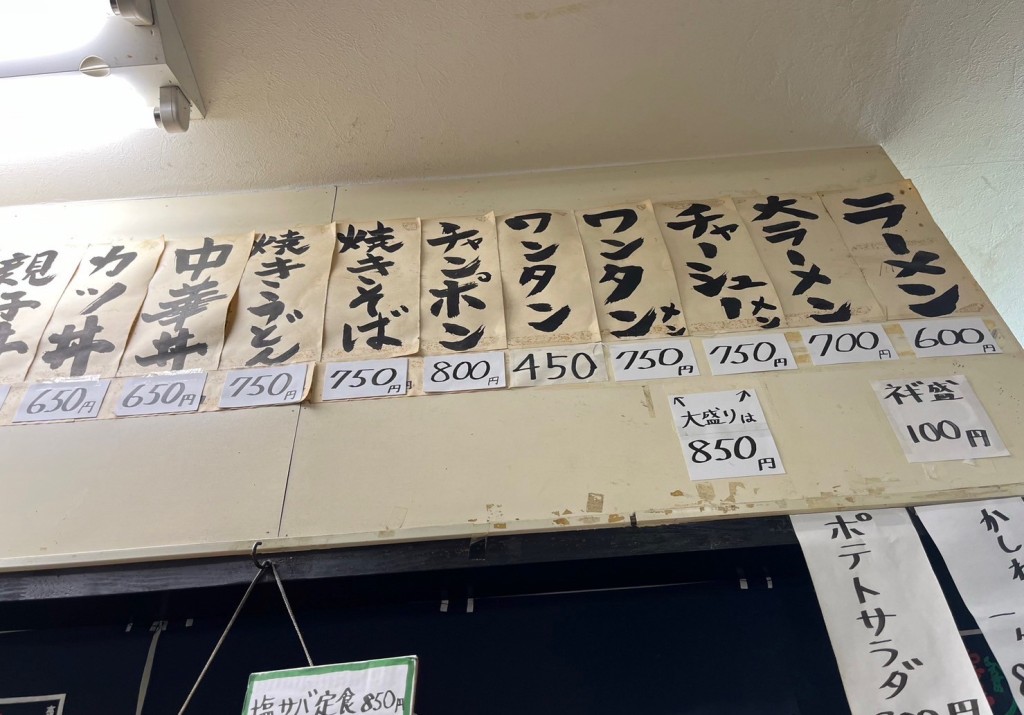 ラーメン
600円
大ラーメン
700円
チャーシューメン
750円
ワンタンメン
750円
ワンタン
450
チャンポン
800円
焼きそば
750円
焼きうどん
750円
中華丼
650円
カツ丼
650円
親子丼
大盛りは
850円
100円
ポテトサラダ
かしわ
塩サバ定食850円